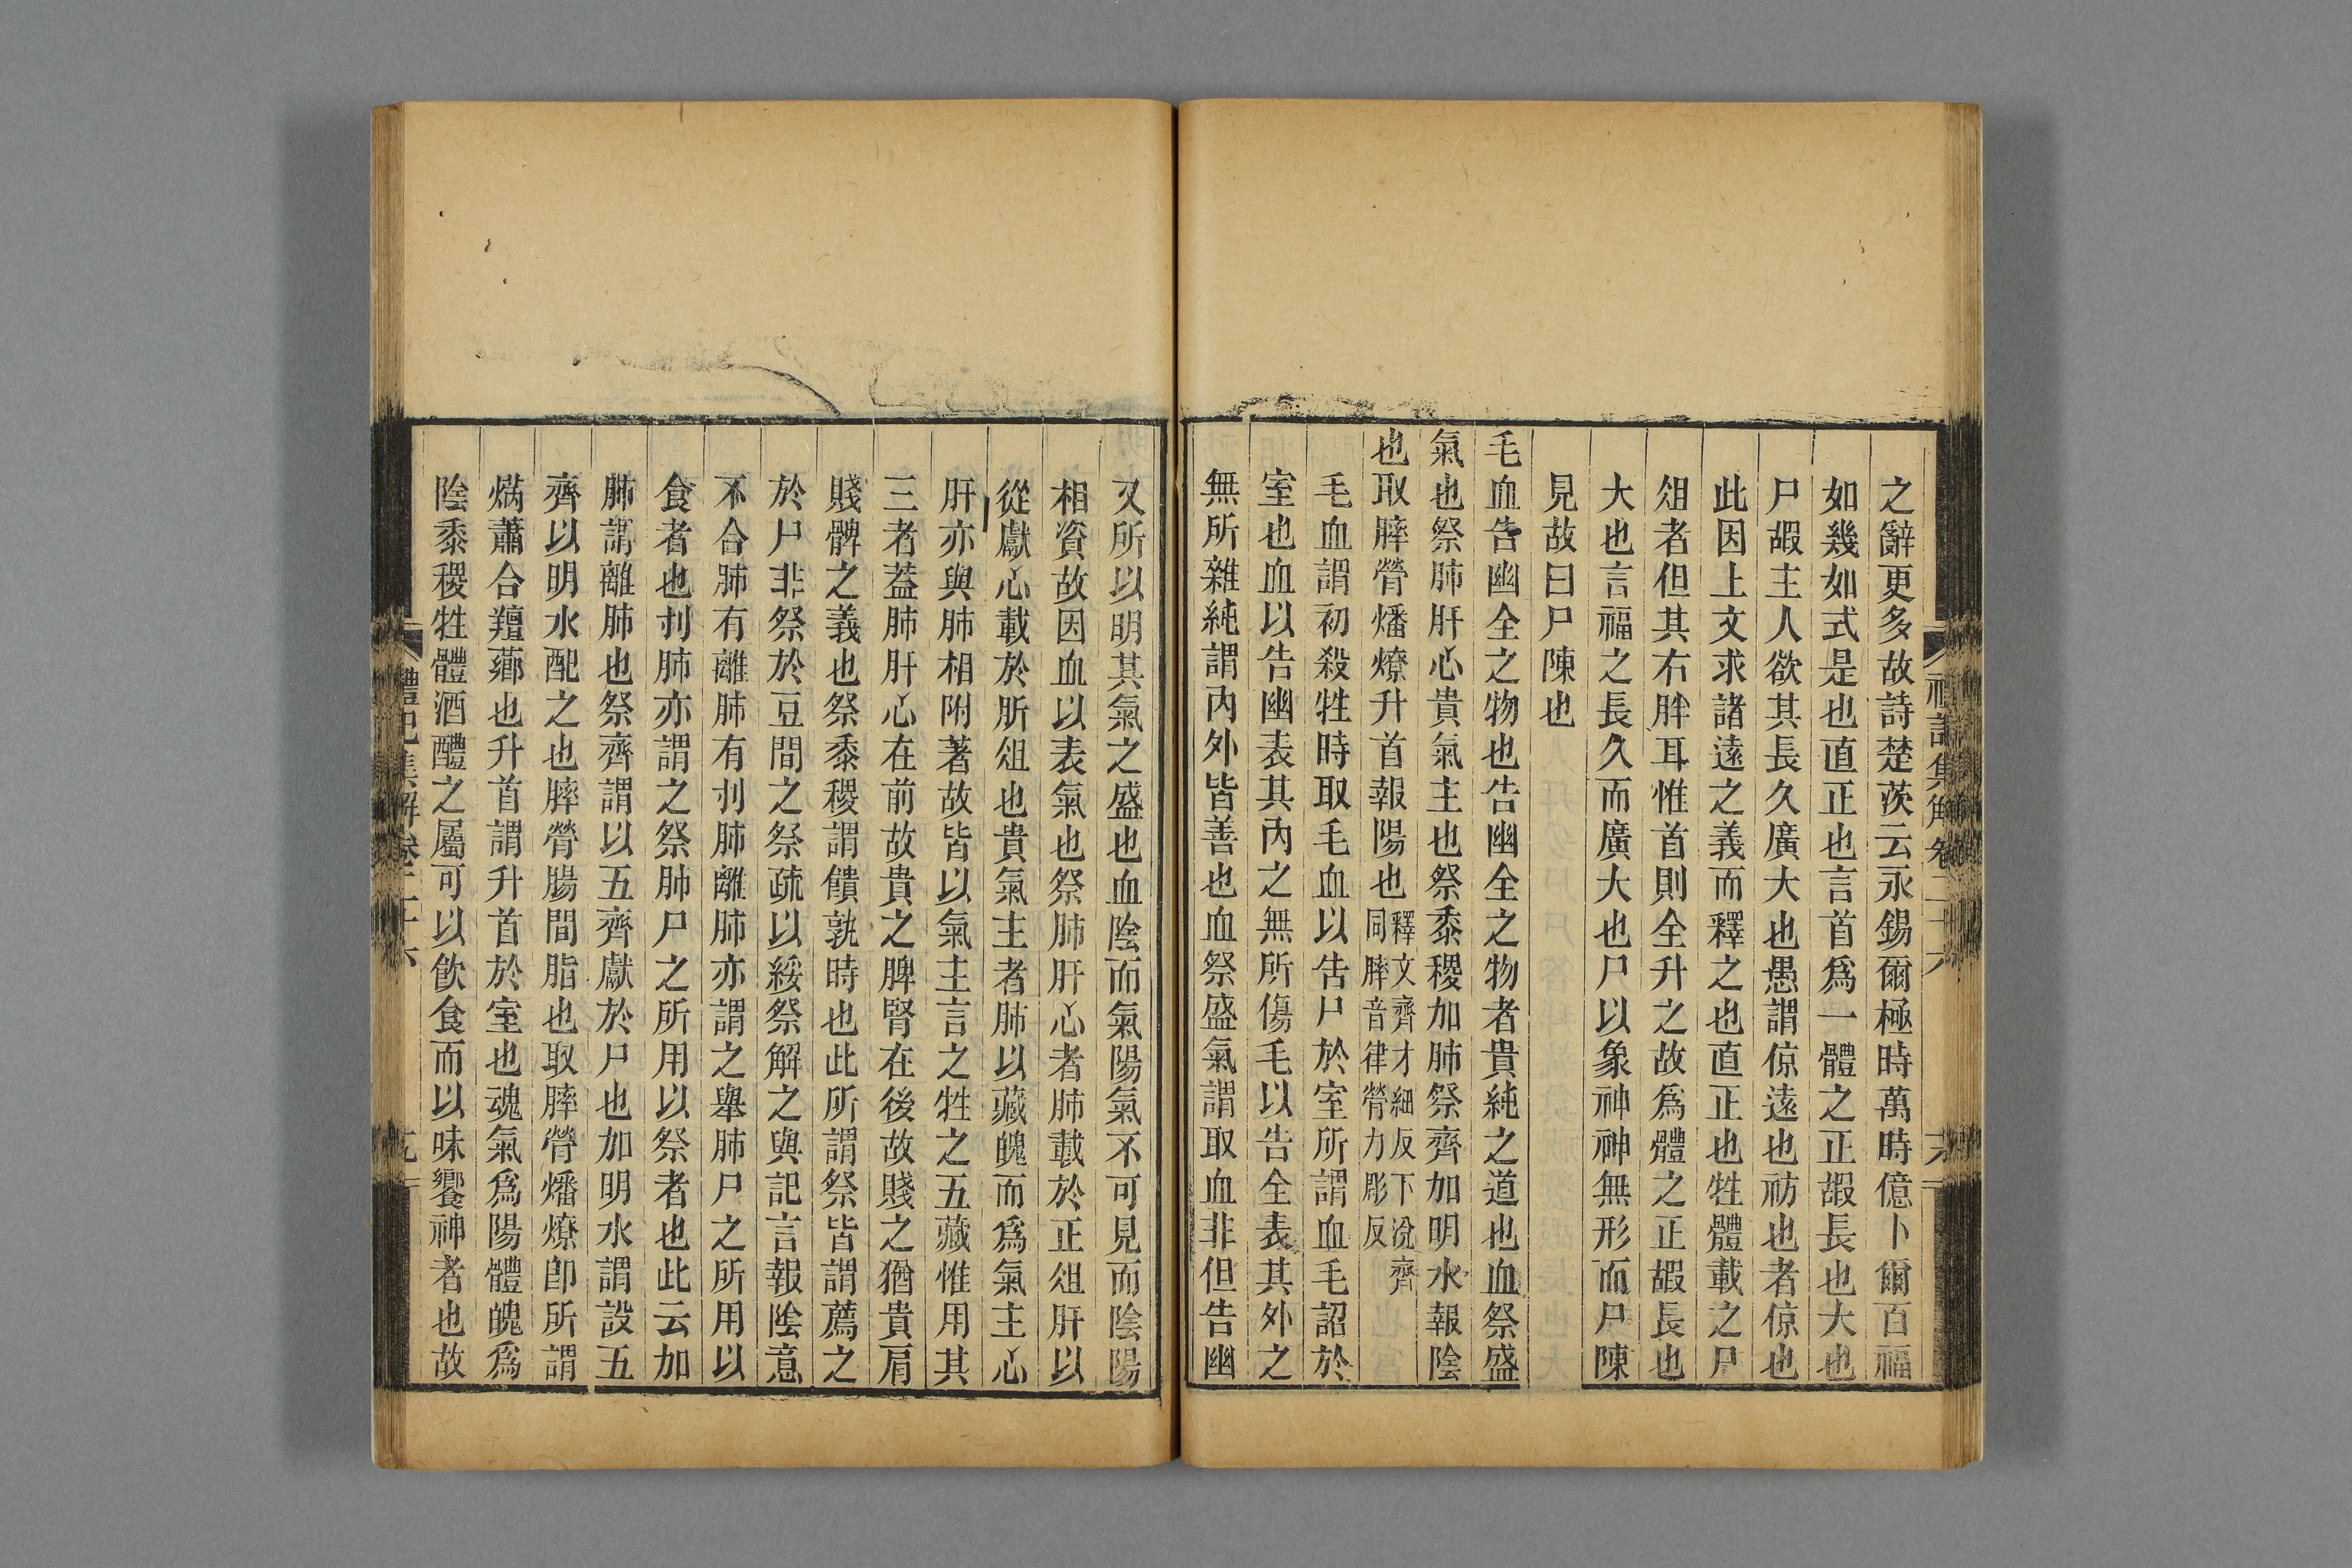 之辭更多故詩楚茨云永錫爾極時萬時億卜爾百福
如幾如式是也直正也言首爲一體之正嘏長也大也
尸嘏主人欲其長久廣大也愚謂倞遠也祊也者倞也
此因上文求諸遠之義而釋之也直正也牲體載之尸
俎者但其右胖耳惟首則全升之故爲體之正嘏長也
大也言福之長久而廣大也尸以象神神無形而尸陳
見故曰尸陳也
毛血告幽全之物也告幽全之物者貴純之道也血祭盛
氣也祭肺肝心貴氣主也祭黍稷加肺祭齊加明水報陰
也取膟膋燔燎升首報陽也 釋文齊才細反下涗齊同膟音律膋力彫反
毛血謂初殺牲時取毛血以告尸於室所謂血毛詔於
室也血以告幽表其內之無所傷毛以告全表其外之
無所雜純謂內外皆善也血祭盛氣謂取血非但告幽
又所以明其氣之盛也血陰而氣陽氣不可見而陰陽
相資故因血以表氣也祭肺肝心者肺載於正俎肝以
從獻心載於肵俎也貴氣主者肺以藏魄而爲氣主心
肝亦與肺相附著故皆以氣主言之牲之五藏惟用其
三者蓋肺肝心在前故貴之脾腎在後故賤之猶貴肩
賤髀之義也祭黍稷謂饋孰時也此所謂祭皆謂薦之
於尸非祭於豆間之祭疏以綏祭解之與記言報陰意
不合肺有離肺有刌肺離肺亦謂之舉肺尸之所用以
食者也刌肺亦謂之祭肺尸之所用以祭者也此云加
肺謂離肺也祭齊謂以五齊獻於尸也加明水謂設五
齊以明水配之也膟膋腸間脂也取膟膋燔燎卽所謂
焫蕭合羶薌也升首謂升首於室也魂氣爲陽體魄爲
陰黍稷牲體酒醴之屬可以飲食而以味饗神者也故
禮記集解卷二十六